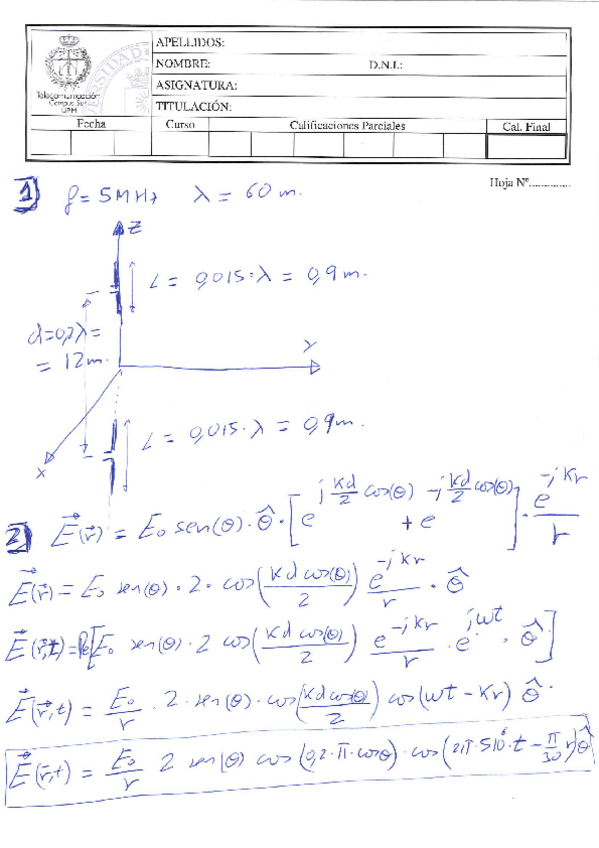 APELLIDOS:
NOMBRE: D.N.I.:
ASIGNATURA:
TITULACIÓN:
Telecomunicación
Campus Sur
UPM
Fecha Curso Calificaciones Parciales Cal. Final
Hoja Nº..............
1) f = 5MHz λ = 60 m.
Z
L = 0,015·λ = 0,9 m.
d=0,2λ=
= 12m.
Y
L = 0,015·λ = 0,9m.
X
2) E⃗(r⃗) = E₀ sen(θ)·θ̂·[e^(j kd/2 cos(θ)) + e^(-j kd/2 cos(θ))]· e^(-jkr)/r
E⃗(r⃗) = E₀ sen(θ)·2·cos(kd cos(θ)/2) e^(-jkr)/r · θ̂
E⃗(r⃗,t) = Re[E₀ sen(θ)·2 cos(kd cos(θ)/2) e^(-jkr)/r · e^(jωt) · θ̂]
E⃗(r⃗,t) = E₀/r · 2 · sen(θ)·cos(kd cos(θ)/2) cos(ωt - kr) θ̂.
E⃗(r⃗,t) = E₀/r 2 sen(θ) cos(0,2·π·cosθ)·cos(2π·5·10⁶·t - π/30 r)θ̂